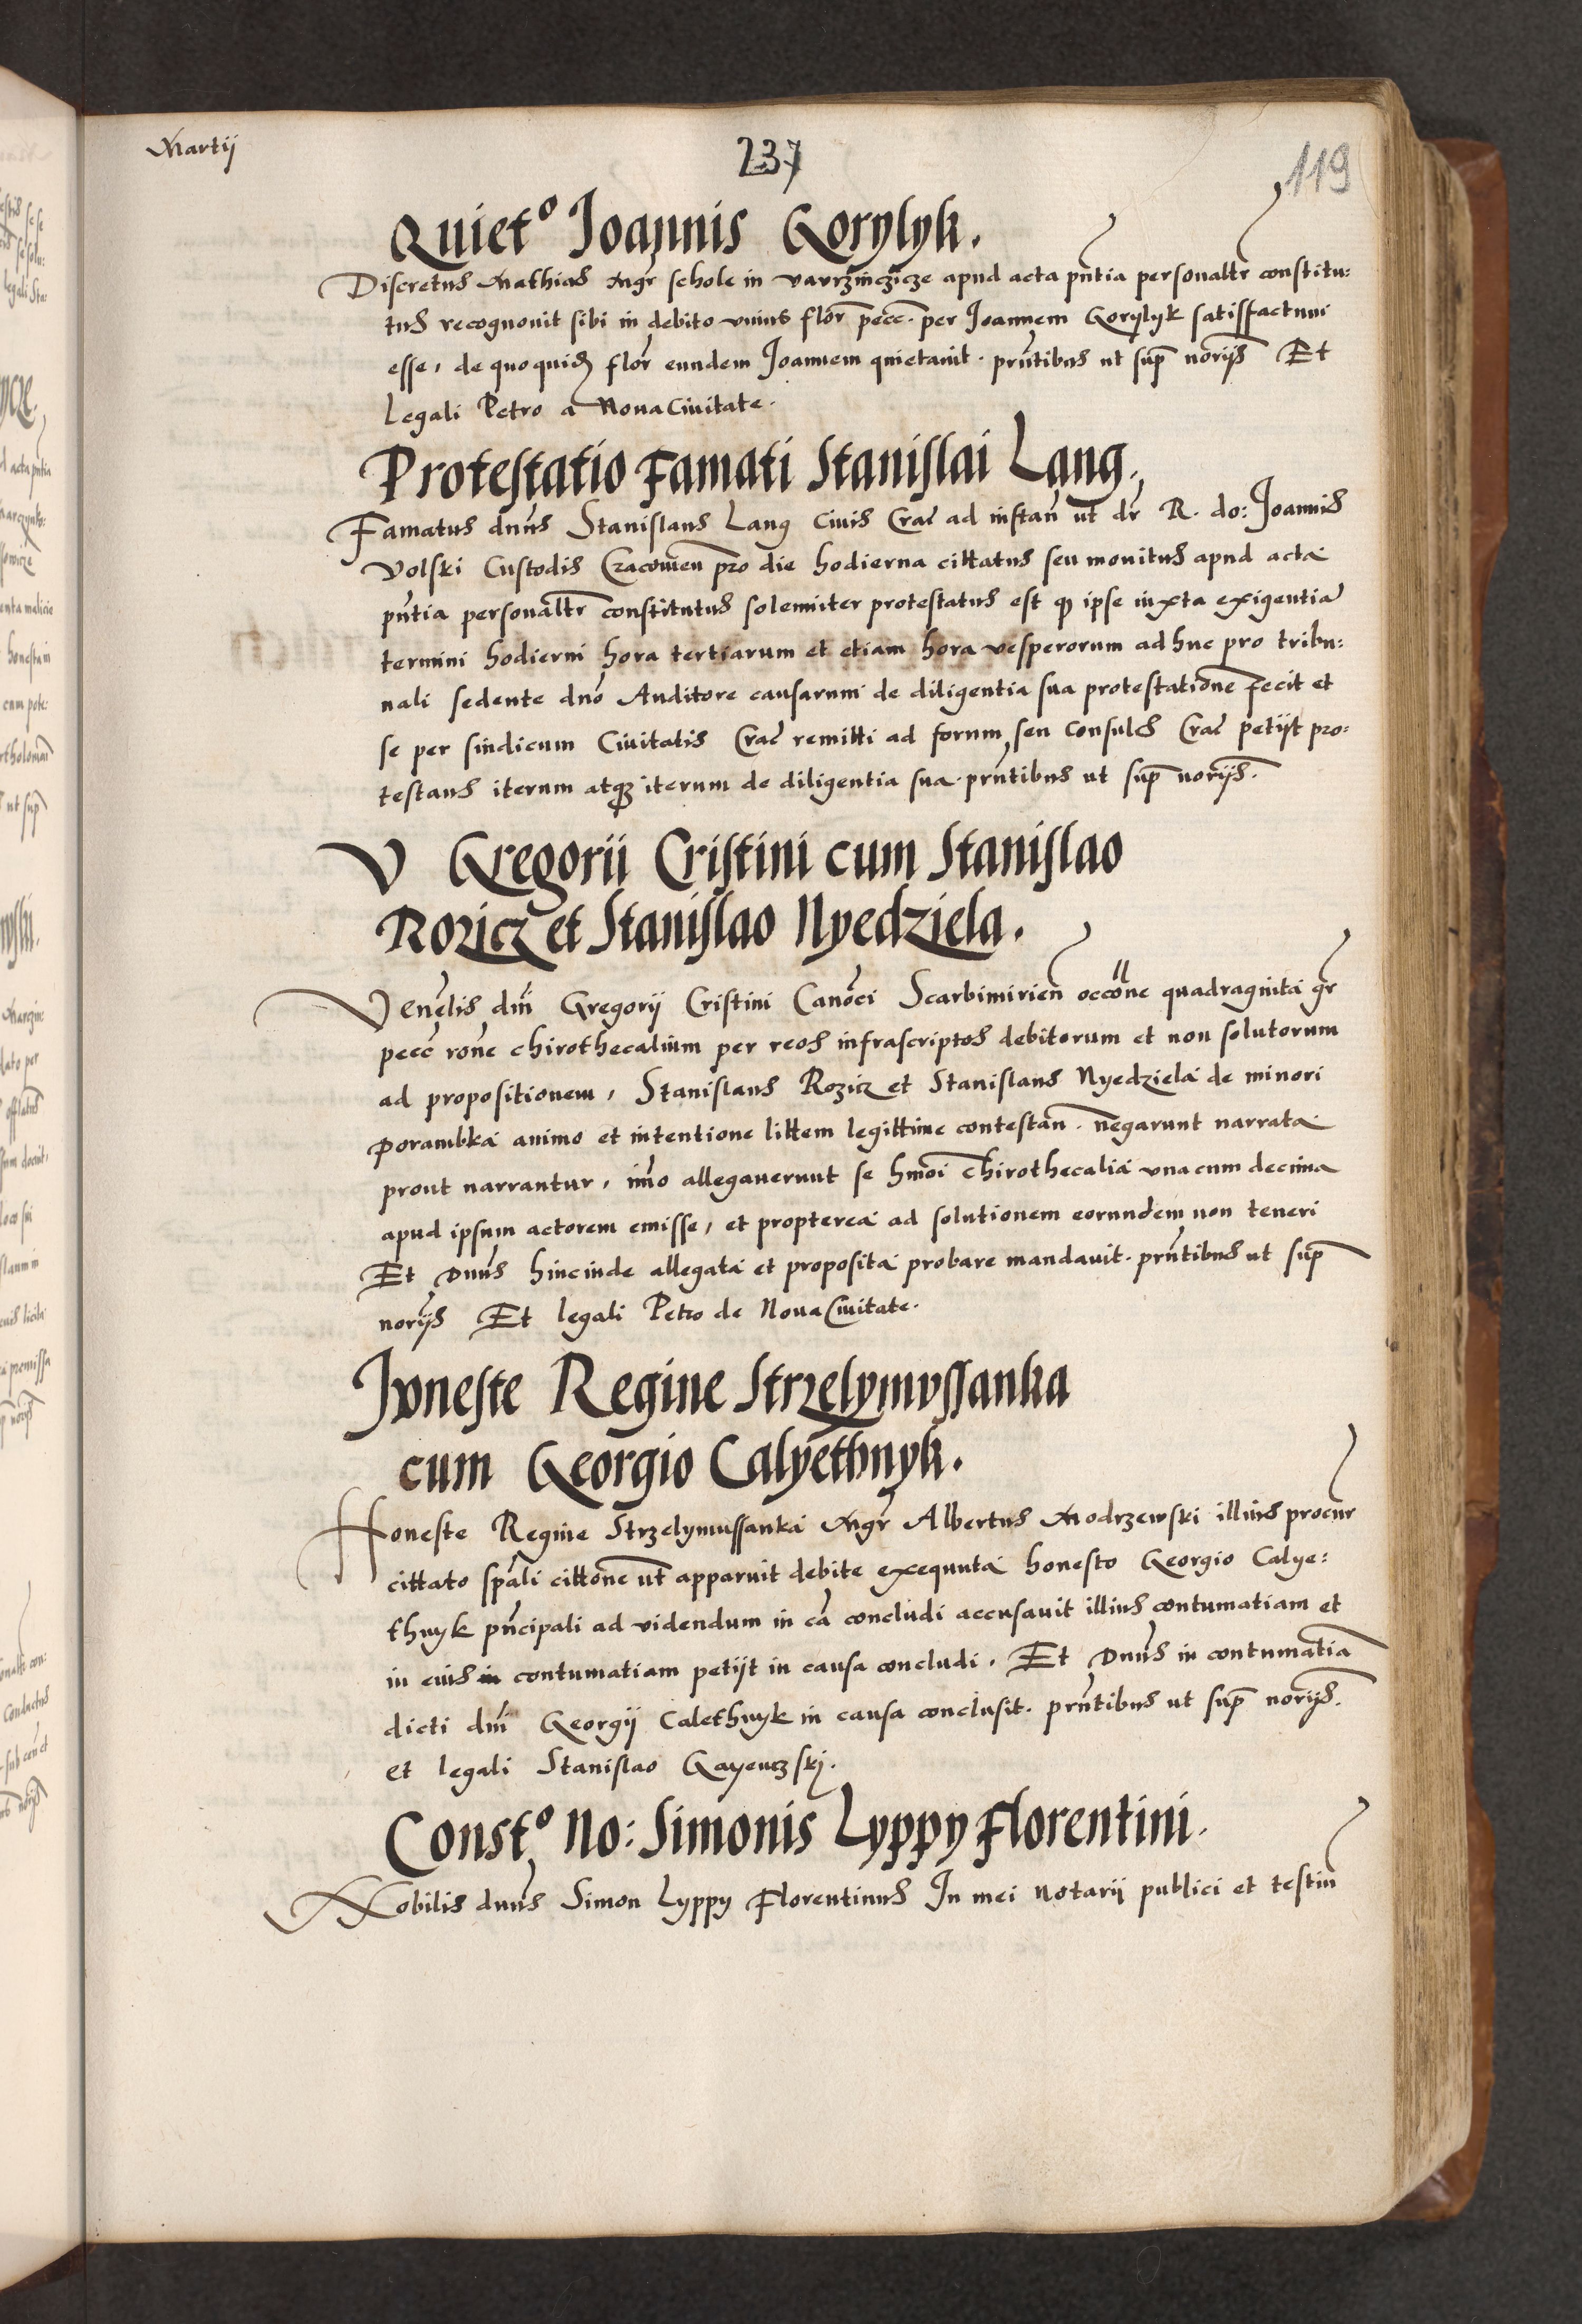 Martij
237
119
Quiet° Joannis Gorylyk.
Discretus Mathias Mgr schole in vavrzinczicze apud acta pñtia personaltr constitu:
tus recognouit sibi in debito vnius flor pecc. per Joannem Gorylyk satisffactum
esse, de quo quid flor eundem Joannem quietauit. prñtibus ut sup norijs Et
legali Petro a Noua Ciuitate.
Protestatio Famati Stanislai Lang.
Famatus dnūs Stanislaus Lang Ciuis Crac ad instan ut dr R. do: Joannis
Volski Custodis Cracouien pro die hodierna cittatus seu monitus apud acta
pñtia personaltr constitutus solemniter protestatus est q ipse iuxta exigentia
termini hodierni hora tertiarum et etiam hora vesperorum ad huc pro tribu:
nali sedente dno Auditore causarum de diligentia sua protestatione fecit et
se per sindicum Ciuitatis Crac remitti ad forum seu Consules Crac petijt pro:
testans iterum atq3 iterum de diligentia sua. prñtibus ut sup norijs.
V Gregorii Cristini cum Stanislao
Rozicz et Stanislao Nyedziela.
Venelis dni Gregorij Cristini Canoci Scarbimirien occone quadraginta gr
pecc rone chirothecalium per reos infrascriptos debitorum et non solutorum
ad propositionem, Stanislaus Rozicz et Stanislaus Nyedziela de minori
Porambka animo et intentione littem legittime contestan. negarunt narrata
prout narrantur, imo allegauerunt se hmoi Chirothecalia vnacum decima
apud ipsum actorem emisse, et propterea ad solutionem eorundem non teneri
Et Dnūs hincinde allegata et proposita probare mandauit. prñtibus ut sup
norijs Et legali Petro de Noua Ciuitate.
Honeste Regine Strzelymussanka
cum Georgio Calyethnyk.
Honeste Regine Strzelymussanka Mgr Albertus Modrzewski illius procur
cittato spali cittone ut apparuit debite exequuta honesto Georgio Calye:
thnyk pñcipali ad videndum in ca concludi accusauit illius contumatiam et
in euis in contumatiam petijt in causa concludi. Et Dnūs in contumatia
dicti dni Georgij Calethnyk in causa conclusit. prñtibus ut sup norijs.
et legali Stanislao Gayenczskj.
Const° No: Simonis Lyppy Florentini.
Nobilis dnūs Simon Lyppy Florentinus In mei Notarij publici et testiu